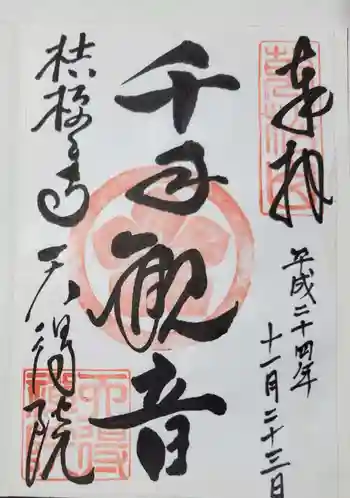 奉拝
平成二十四年
十一月二十三日
千手観音
桔梗寺 天得院
天得院